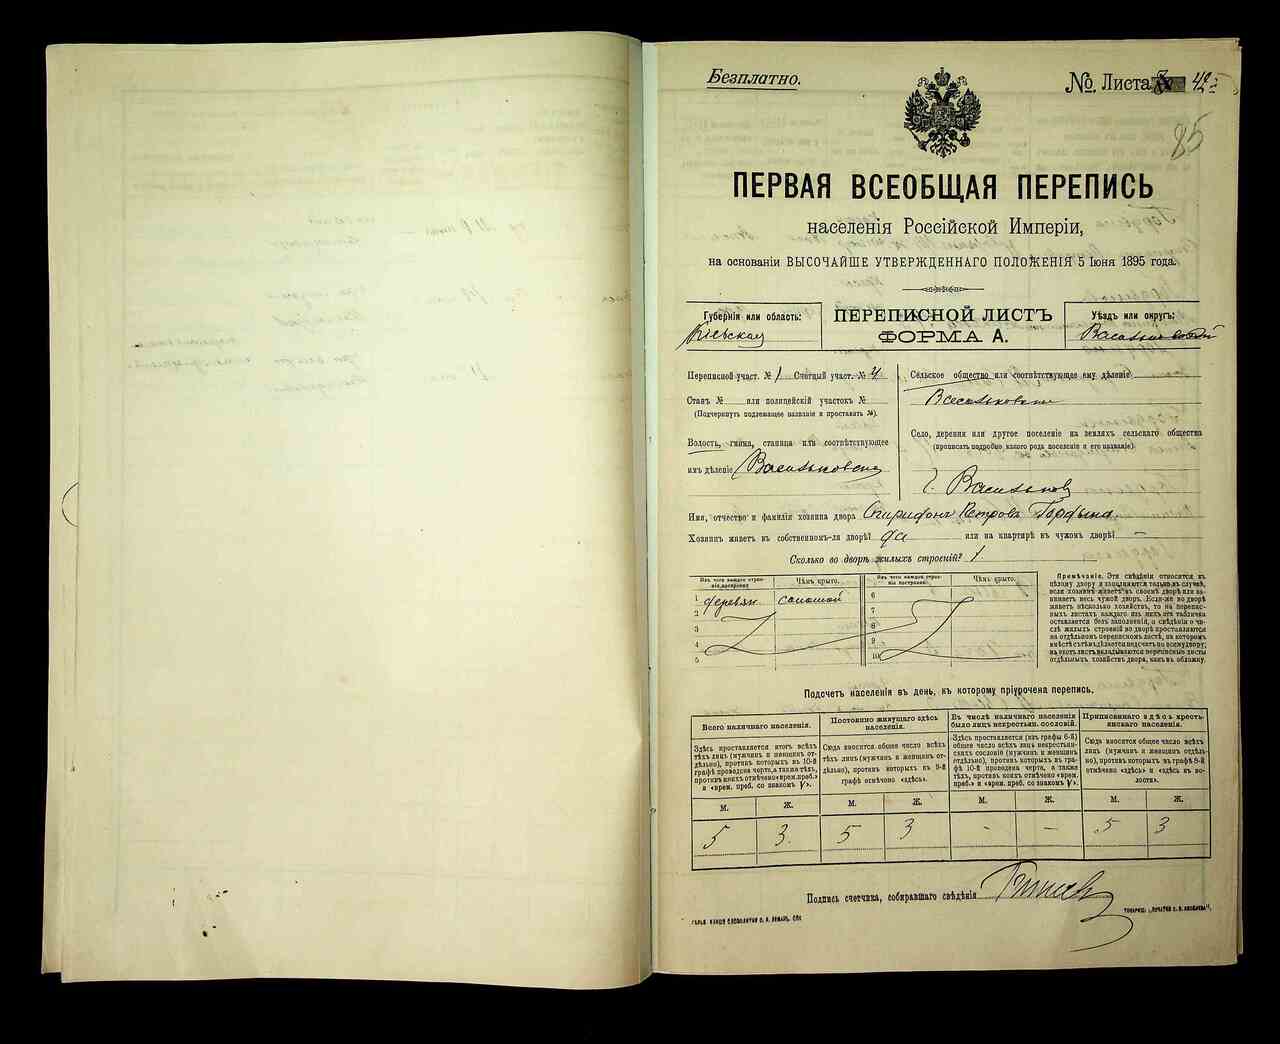 Безплатно.
№ Листа 42
85
ПЕРВАЯ ВСЕОБЩАЯ ПЕРЕПИСЬ
населенія Россійской Имперіи,
на основаніи ВЫСОЧАЙШЕ УТВЕРЖДЕННАГО ПОЛОЖЕНІЯ 5 Іюня 1895 года.
Губернія или область:
Кіевская
ПЕРЕПИСНОЙ ЛИСТЪ
ФОРМА А.
Уѣздъ или округъ:
Васильковскій
Переписной участ. № 1 Счетный участ. № 4
Станъ № или полицейскій участокъ №
(Подчеркнуть подлежащее названіе и проставить №).
Волость, гмина, станица или соотвѣтствующее
имъ дѣленіе Васильковская
Сельское общество или соотвѣтствующее ему дѣленіе
Васильковское
Село, деревня или другое поселеніе на земляхъ сельскаго общества
(прописать подробно, какого рода поселеніе и его названіе)
г. Васильковъ
Имя, отчество и фамилія хозяина двора Спиридонъ Петровъ Гордына
Хозяинъ живетъ въ собственномъ-ли дворѣ? да или на квартирѣ въ чужомъ дворѣ? —
Сколько во дворѣ жилыхъ строеній? 1
Изъ чего каждое строеніе построено Чѣмъ крыто.
1 деревян. соломой
2
3
4
5
Изъ чего каждое строеніе построено. Чѣмъ крыто.
6
7
8
9
10
Примѣчаніе. Эти свѣдѣнія относятся къ
цѣлому двору и заполняются только въ случаѣ,
если хозяинъ живетъ въ своемъ дворѣ или занимаетъ
весь чужой дворъ. Если-же во дворѣ
живетъ нѣсколько хозяйствъ, то на переписныхъ
листахъ каждаго изъ нихъ эта табличка
оставляется безъ заполненія, а свѣдѣнія о числѣ
жилыхъ строеній во дворѣ проставляются
на отдѣльномъ переписномъ листѣ, на которомъ
вмѣстѣ съ тѣмъ дѣлается подсчетъ по всему двору;
въ этотъ листъ вкладываются переписные листы
отдѣльныхъ хозяйствъ двора, какъ въ обложку.
Подсчетъ населенія въ день, къ которому пріурочена перепись.
Всего наличнаго населенія.
Здѣсь проставляется итогъ всѣхъ
тѣхъ лицъ (мужчинъ и женщинъ отдѣльно),
противъ которыхъ въ 10-й
графѣ проведена черта, а также тѣхъ,
противъ коихъ отмѣчено «врем. преб.»
и «врем. преб. со знакомъ V».
Постоянно живущаго здѣсь
населенія.
Сюда вносится общее число всѣхъ
тѣхъ лицъ (мужчинъ и женщинъ отдѣльно),
противъ которыхъ въ 9-й
графѣ отмѣчено «здѣсь».
Въ числѣ наличнаго населенія
было лицъ некрестьян. сословій.
Здѣсь проставляется (изъ графы 6-й)
общее число всѣхъ лицъ некрестьянскихъ
сословій (мужчинъ и женщинъ
отдѣльно), противъ которыхъ въ графѣ
10-й проведена черта, а также
тѣхъ, противъ коихъ отмѣчено «врем.
преб.» и «врем. преб. со знакомъ V».
Приписаннаго здѣсь крестьянскаго
населенія.
Сюда вносится общее число всѣхъ
лицъ (мужчинъ и женщинъ отдѣльно),
противъ которыхъ въ графѣ 8-й
отмѣчено «здѣсь» и «здѣсь въ волости».
М. Ж. М. Ж. М. Ж. М. Ж.
5 3 5 3 - - 5 3
Подпись счетчика, собиравшаго свѣдѣнія